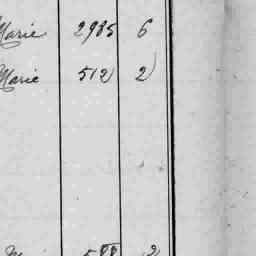 Marie 2985 6
Marie 512 2
588 2